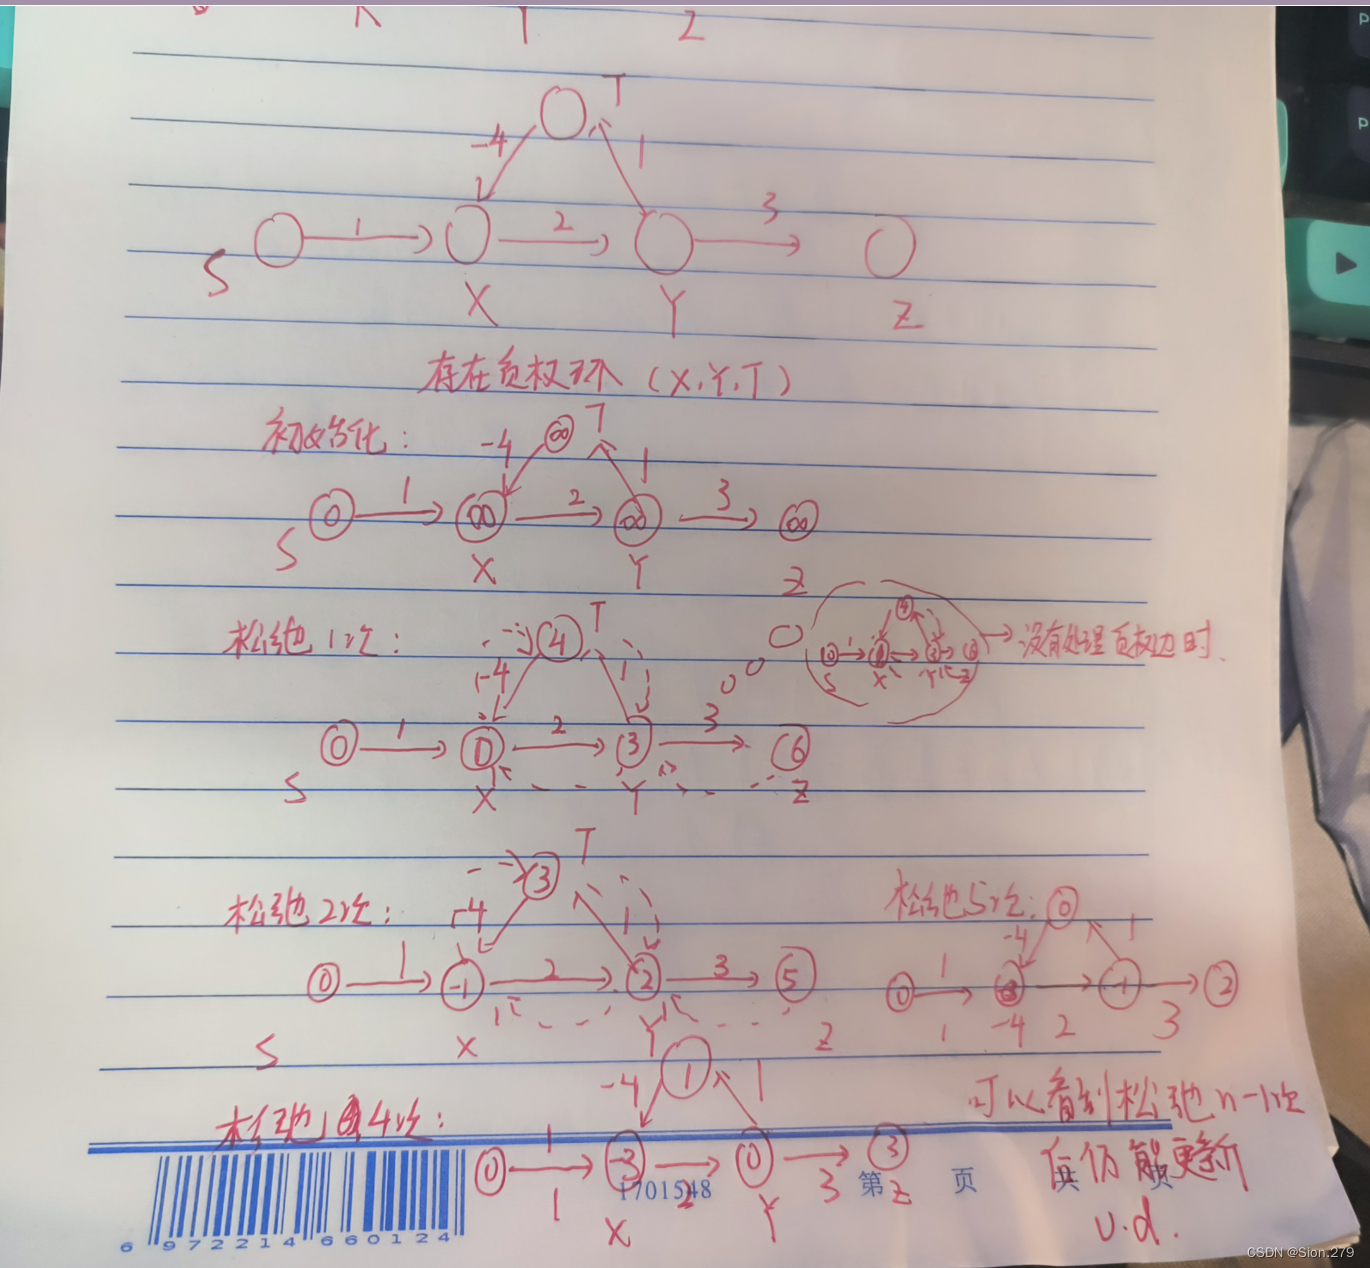 X Y Z
T
-4 1
1 2 3
S X Y Z
存在负权环（X.Y.T）
初始化：
T
-4 ∞ 1
0 1 ∞ 2 ∞ 3 ∞
S X Y Z
松弛1次：
T
4
-4 1
没有处理负权边时.
0 1 2 3 3 6
S X Y Z
松弛2次：
T
3
-4 1
0 1 -1 2 2 3 5
S X Y Z
松弛5次：
0
-4 1
0 1 -1 2
1 -4 2 3
松弛4次：
1
-4 1
0 1 -3 2 0 3 3
1 X Y Z
可以看到松弛n-1次
仍能更新
v.d.
1701548 第 页 共 页
6 972214 660124
CSDN @Sion.279